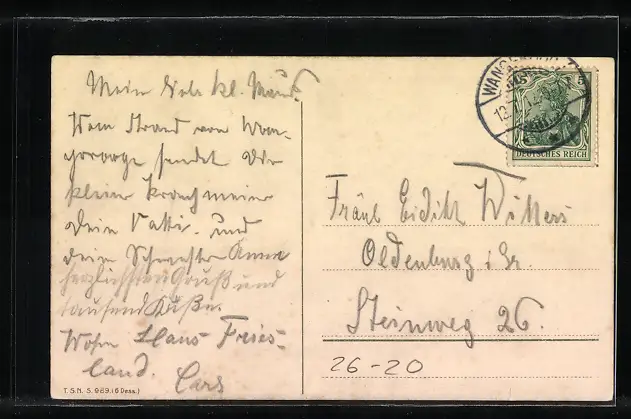 Mein lieb. kl. Mausi.
Vom Strand von Wan-
gerooge sendet Dir
kleine
Dein Vatti. und
deine Schwester Anna
herzlichsten Gruß und
tausend Küße.
Wohn Haus Fries-
land.
T.S.N. S. 989. (6 Dess.)
WANGEROOG
DEUTSCHES REICH
Fräul
Oldenburg i Gr.
Steinweg 26.
26-20